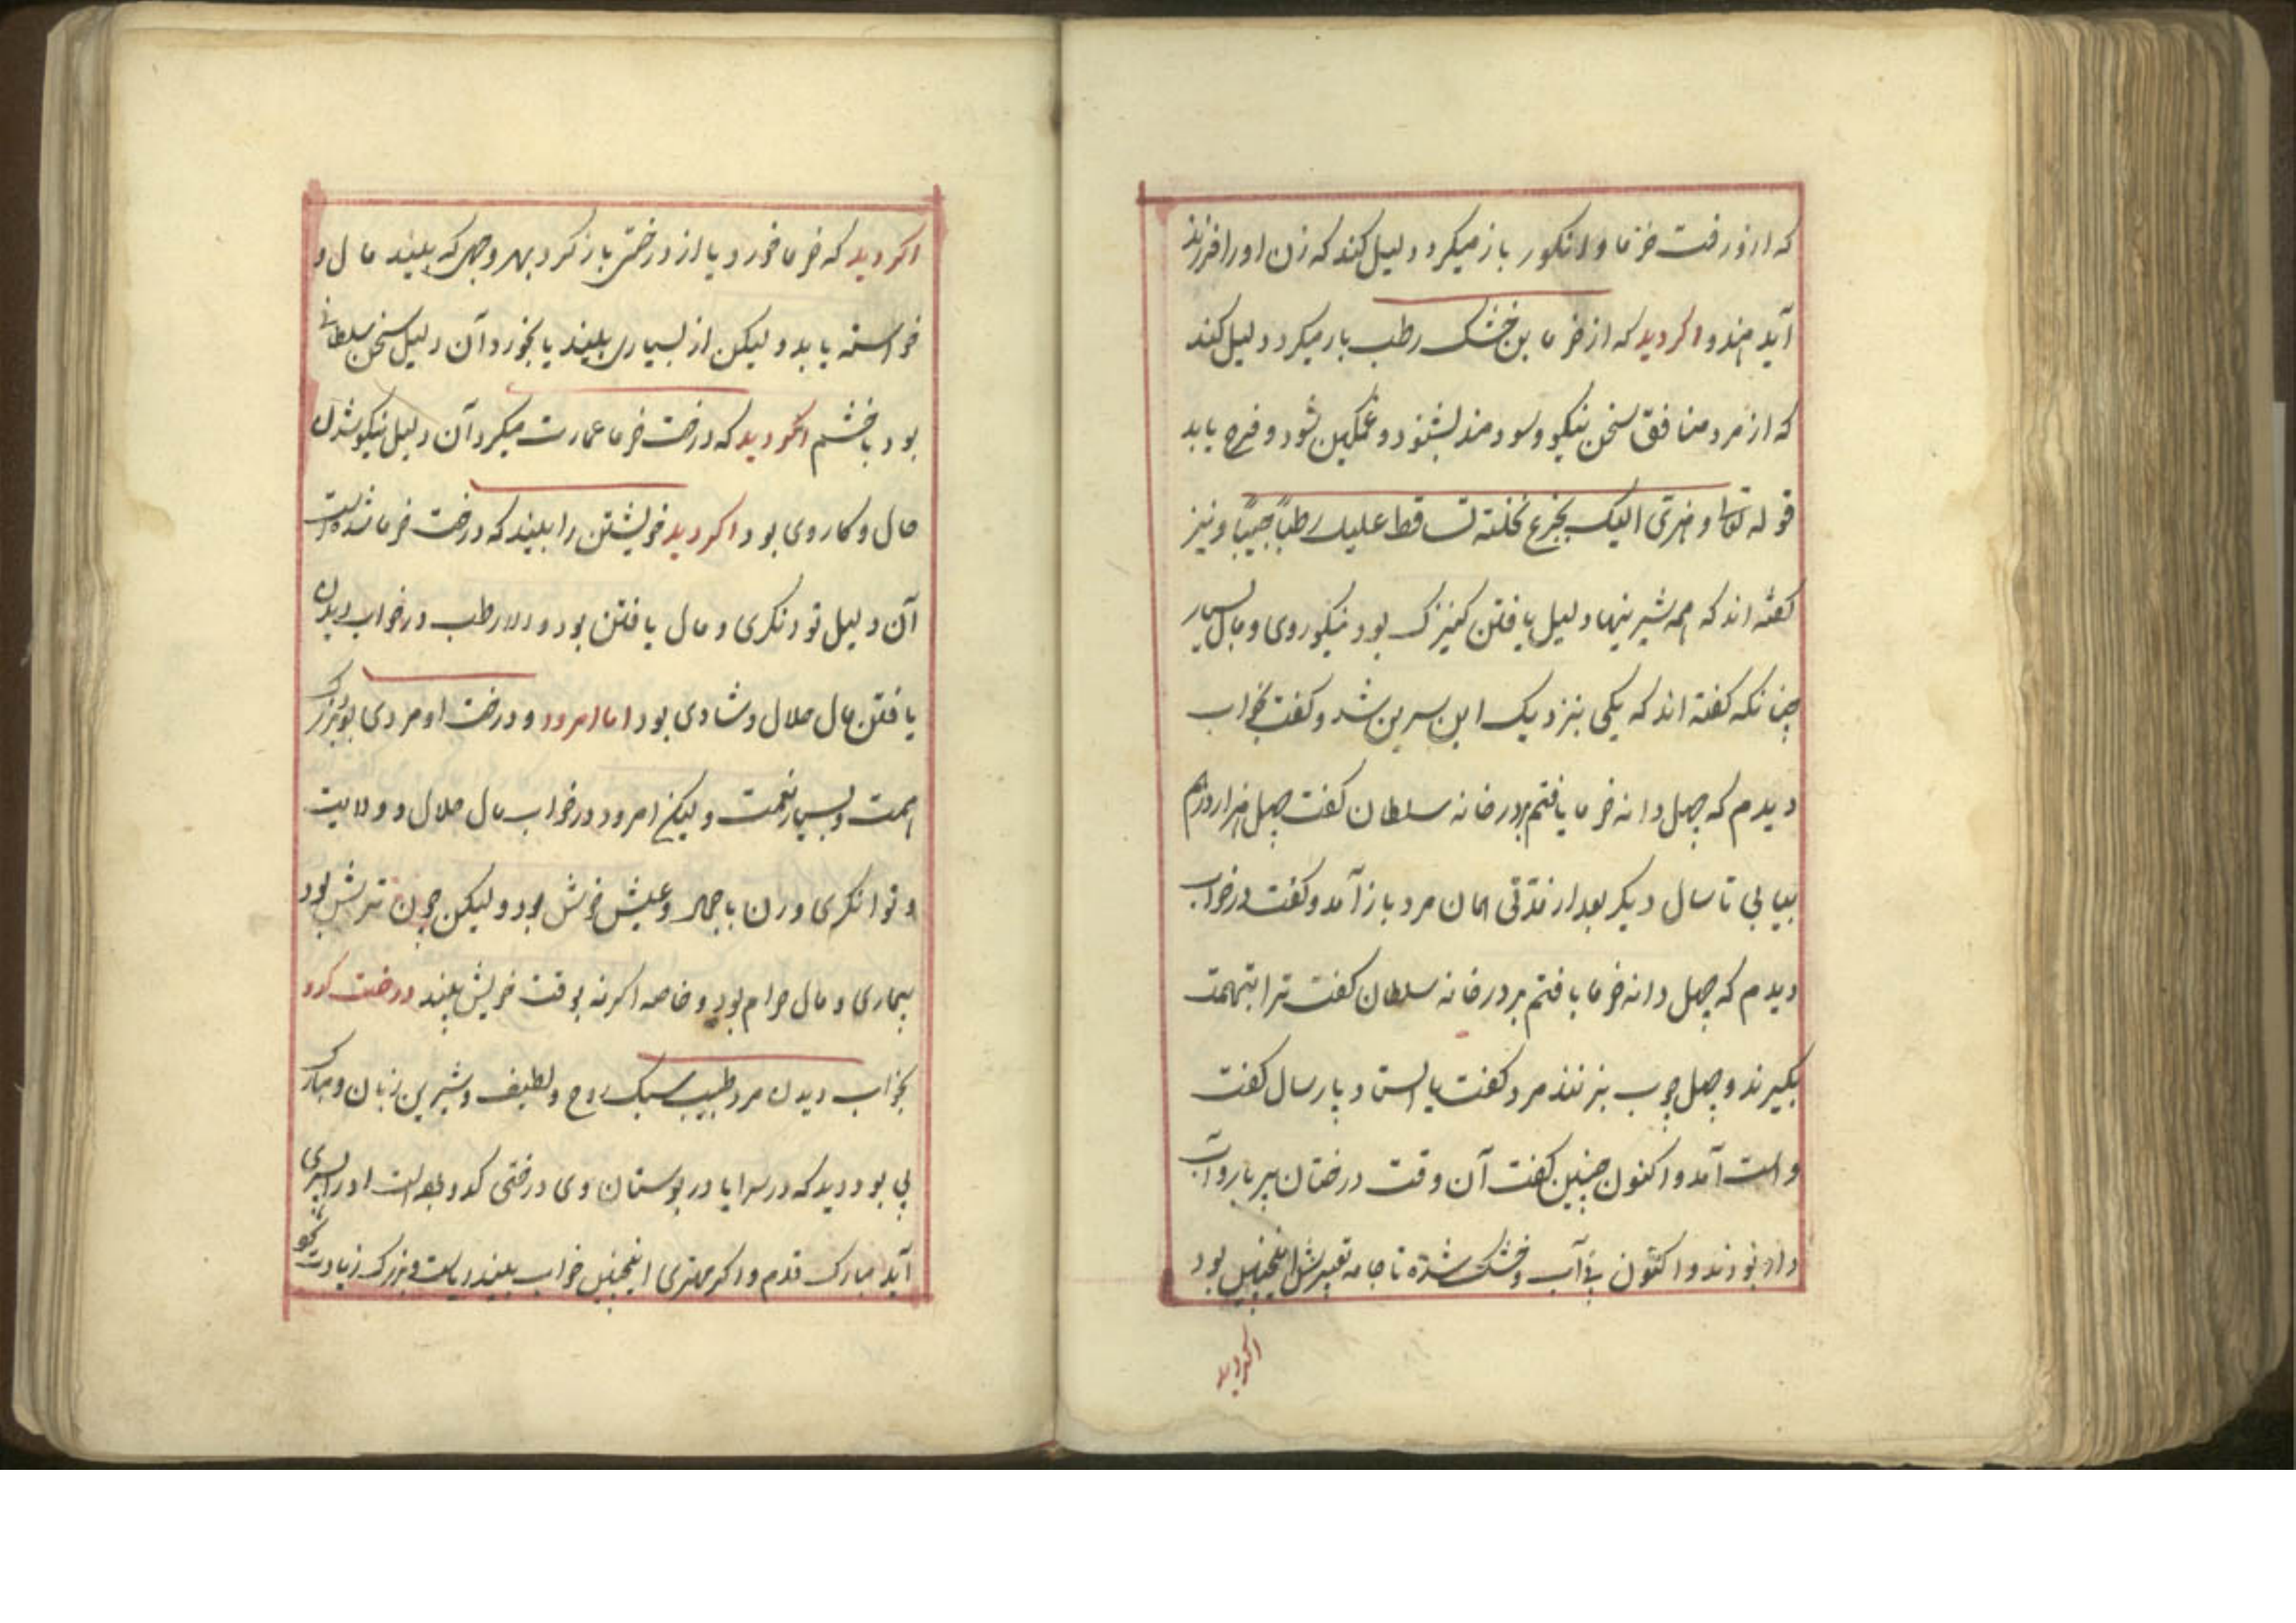 که از درخت خرما و انکور باز میکرد دلیل کند که زن او را فرزند
آید هند و اکر دید که از خرما بن خشک رطب بار میکرد دلیل کند
که از مرد منافق سخن نیکو و سودمند بشنود و غمکین شود و فرح یابد
قوله تعالی و هزی الیک بجزع نخلته تساقط علیک رطباً جنیباً و نیز
کفته اند که همه شیرینها دلیل یافتن کنیزک بود نیکوروی و مال بسیار
چنانکه کفته اند که یکی بنزدیک ابن سرین شد و کفت بخواب
دیدم که چهل دانه خرما یافتم بر در خانه سلطان کفت چهل هزار درم
بیابی تا سال دیکر بعد از مدتی همان مرد باز آمد و کفت در خواب
دیدم که چهل دانه خرما یافتم بر در خانه سلطان کفت ترا بتهمت
بکیرند و چهل چوب بزنند مرد کفت یا استاد پار سال کفت
راست آمد و اکنون چنین کفت آن وقت درختان پر بار و آب
دار بودند و اکنون بی آب و خشک شده تا جامه تعبیرش اینچنین بود
اکر دید
اکر دید که خرما خورد یا از درختی باز کرد بهر وجهی که بیند مال و
خواسته یابد ولیکن از بسیاری بیند یا بخورد آن دلیل سخن سلطانی
بود با خشم اکر دید که درخت خرما عمارت میکرد آن دلیل نیکو شدن
حال و کار وی بود اکر دید خویشتن را بیند که درخت خرما شده است
آن دلیل تونکری و مال یافتن بود و رطب در خواب دیدن
یافتن مال حلال و شادی بود اما امرود و درخت او مردی بود بزرک
همت و بسیار نعمت ولیکن امرود در خواب مال حلال و ولایت
و توانکری و زن با جمال و عیش خوش بود ولیکن چون ترش بود
بیماری و مال حرام بود و خاصه اکر نه بوقت خویش بیند درخت کدو
بخواب دیدن مرد طبیب سبک روح و لطیف و شیرین زبان و مبارک
پی بود دید که در سرا یا در بوستان وی درختی کدو است او را پسری
آید مبارک قدم و اکر مهتری اینچنین خواب بیند ریاست و بزرک زیادت